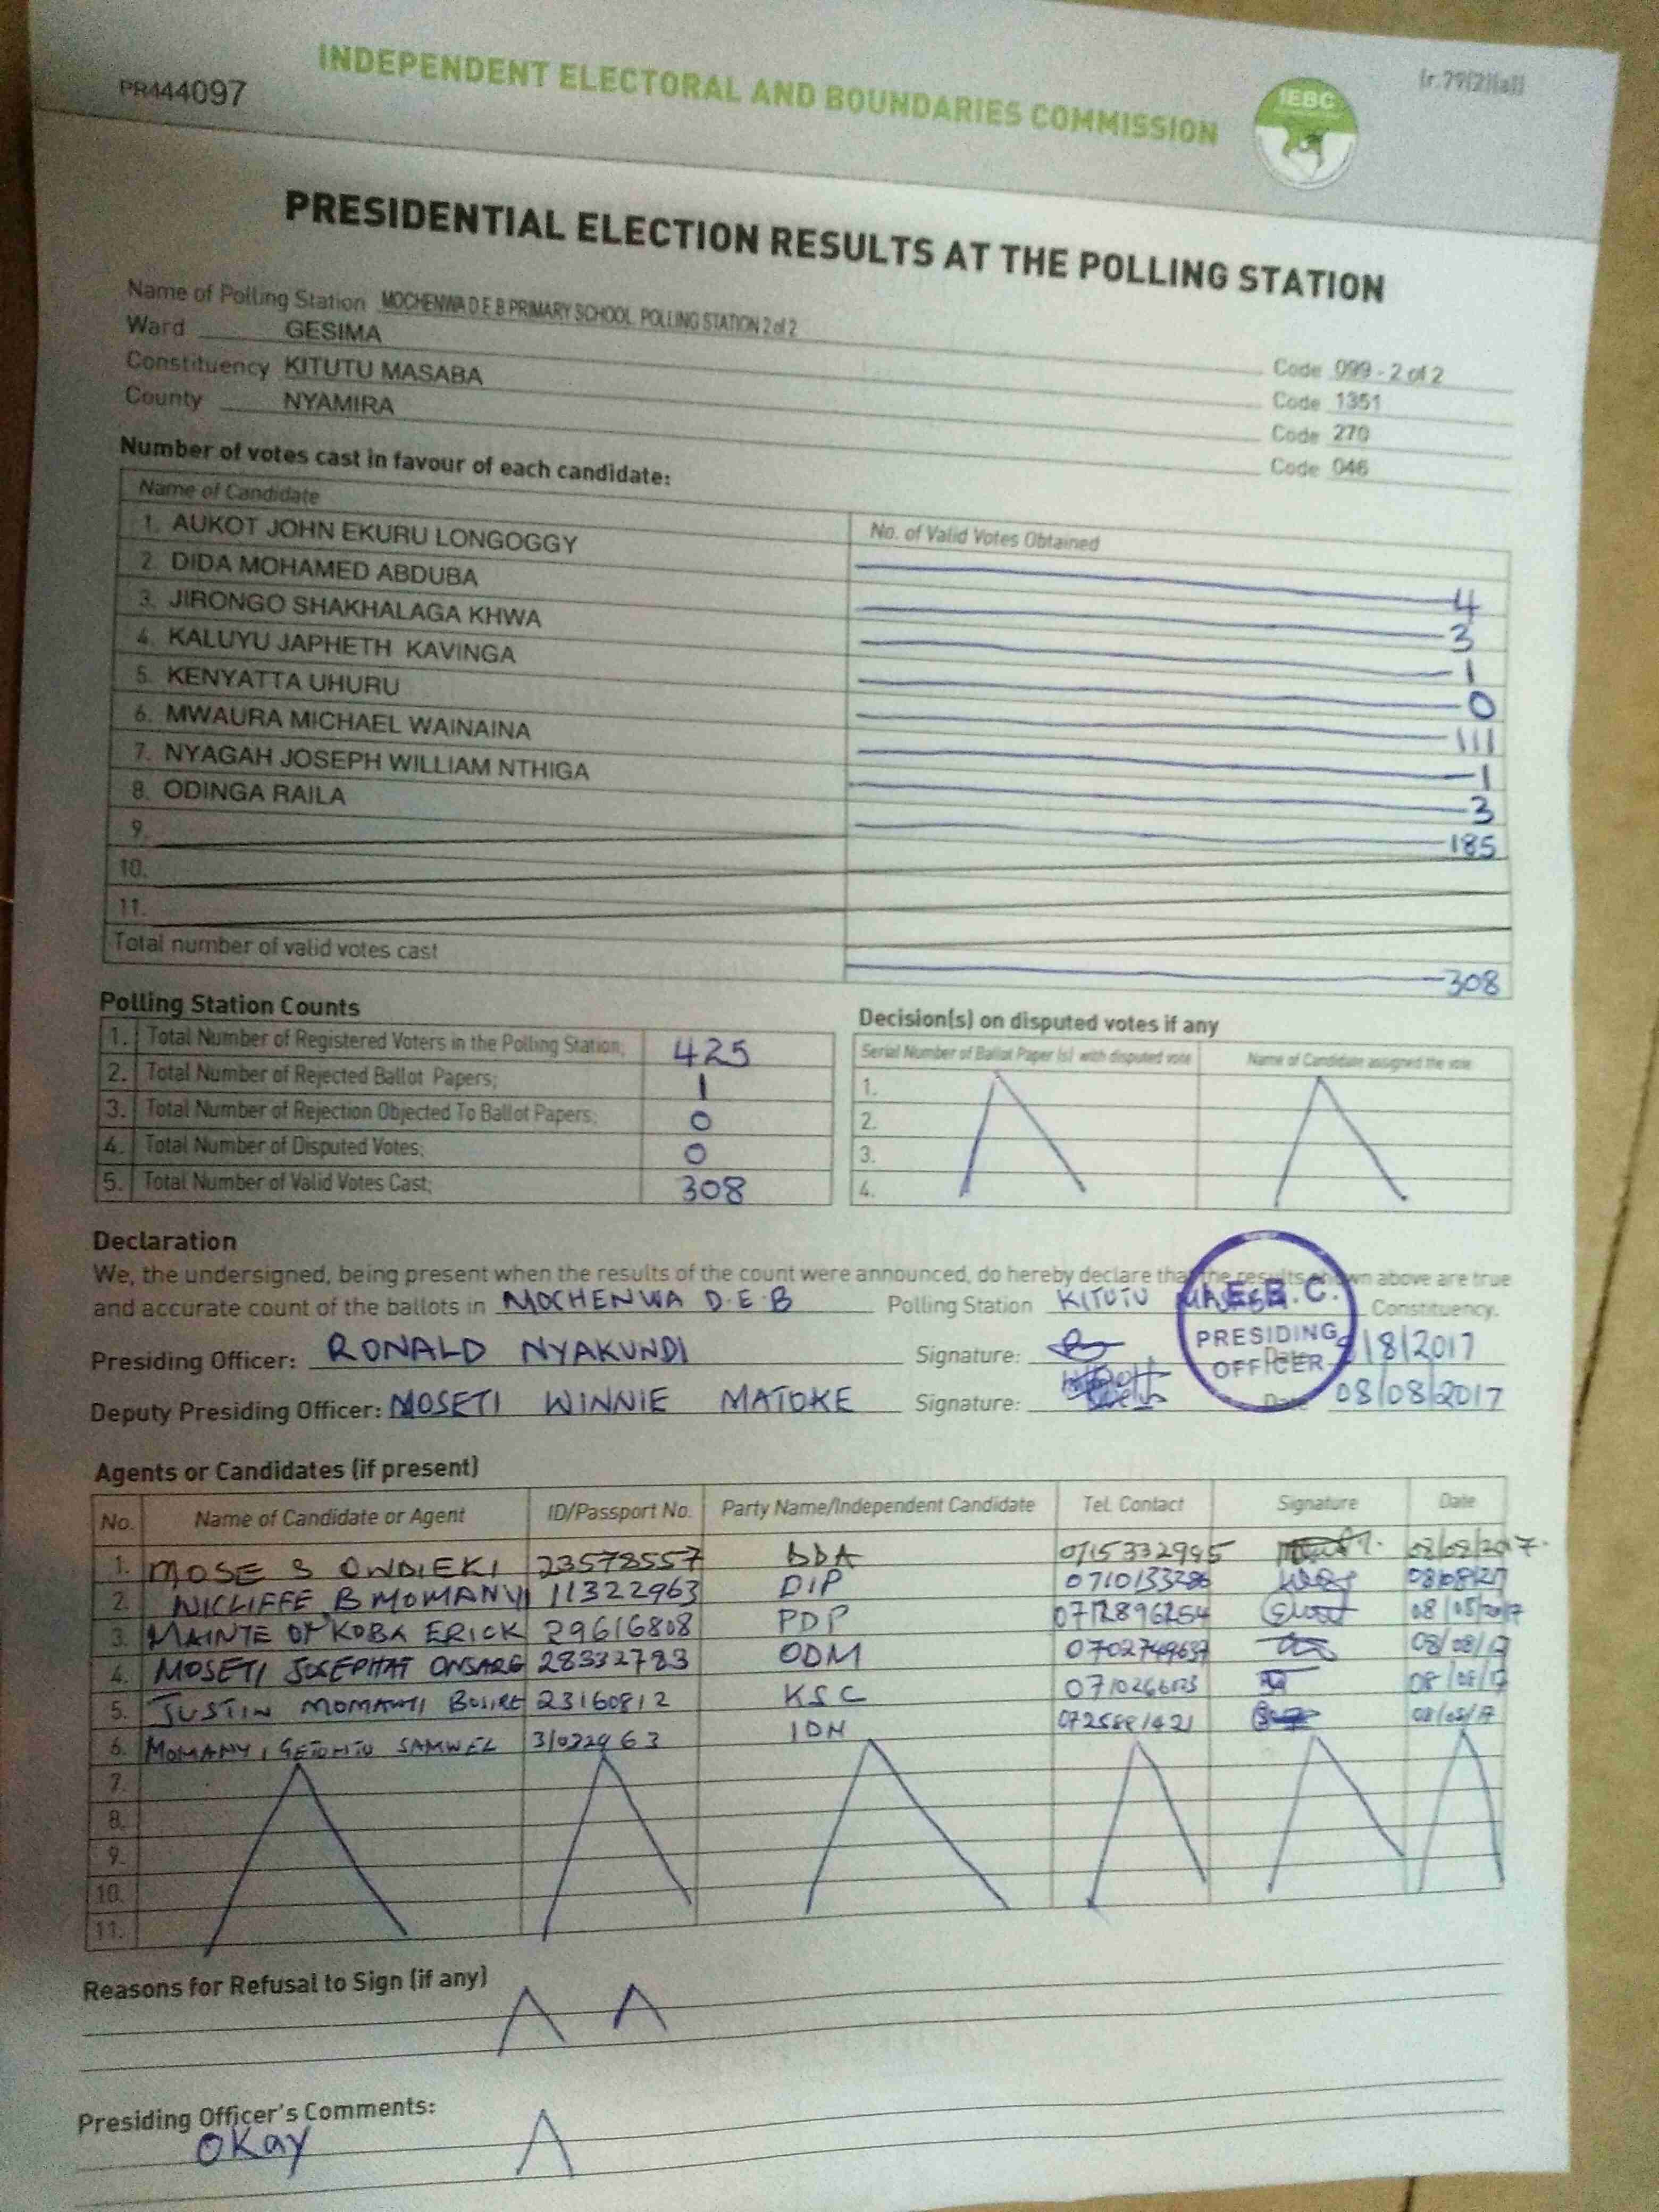 (r.79(2)(a))
PR444097
INDEPENDENT ELECTORAL AND BOUNDARIES COMMISSION
IEBC
PRESIDENTIAL ELECTION RESULTS AT THE POLLING STATION
Name of Polling Station MOCHENWA D E B PRIMARY SCHOOL POLLING STATION 2 of 2 Code 099 - 2 of 2
Ward GESIMA Code 1351
Constituency KITUTU MASABA Code 270
County NYAMIRA Code 046
Number of votes cast in favour of each candidate:
Name of Candidate No. of Valid Votes Obtained
1. AUKOT JOHN EKURU LONGOGGY 4
2. DIDA MOHAMED ABDUBA 3
3. JIRONGO SHAKHALAGA KHWA 1
4. KALUYU JAPHETH KAVINGA 0
5. KENYATTA UHURU 111
6. MWAURA MICHAEL WAINAINA 1
7. NYAGAH JOSEPH WILLIAM NTHIGA 3
8. ODINGA RAILA 185
9.
10.
11.
Total number of valid votes cast 308
Polling Station Counts
1. Total Number of Registered Voters in the Polling Station; 425
2. Total Number of Rejected Ballot Papers; 1
3. Total Number of Rejection Objected To Ballot Papers; 0
4. Total Number of Disputed Votes; 0
5. Total Number of Valid Votes Cast; 308
Decision(s) on disputed votes if any
Serial Number of Ballot Paper (s) with disputed vote Name of Candidate assigned the vote
1.
2.
3.
4.
Declaration
We, the undersigned, being present when the results of the count were announced, do hereby declare that the results shown above are true
and accurate count of the ballots in MOCHENWA D.E.B Polling Station KITUTU Constituency.
I.E.B.C.
PRESIDING
OFFICER
Presiding Officer: RONALD NYAKUNDI Signature: Date 8/8/2017
Deputy Presiding Officer: MOSETI WINNIE MATOKE Signature: Date 08/08/2017
Agents or Candidates (if present)
No. Name of Candidate or Agent ID/Passport No. Party Name/Independent Candidate Tel. Contact Signature Date
1. MOSE S ONDIEKI 23578557 0715332995 08/08/2017.
2. WICLIFFE B MOMANYI 11322963 DIP 08/08/17
3. ERICK 29616808 PDP 0712896254
4. MOSETI JOSEPHAT 28332783 ODM 08/08/17
5. JUSTIN BOSIRE 23160812 KSC 08/08/17
6. MOMANYI SAMWEL 31022963
7.
8.
9.
10.
11.
Reasons for Refusal to Sign (if any)
Presiding Officer's Comments:
Okay